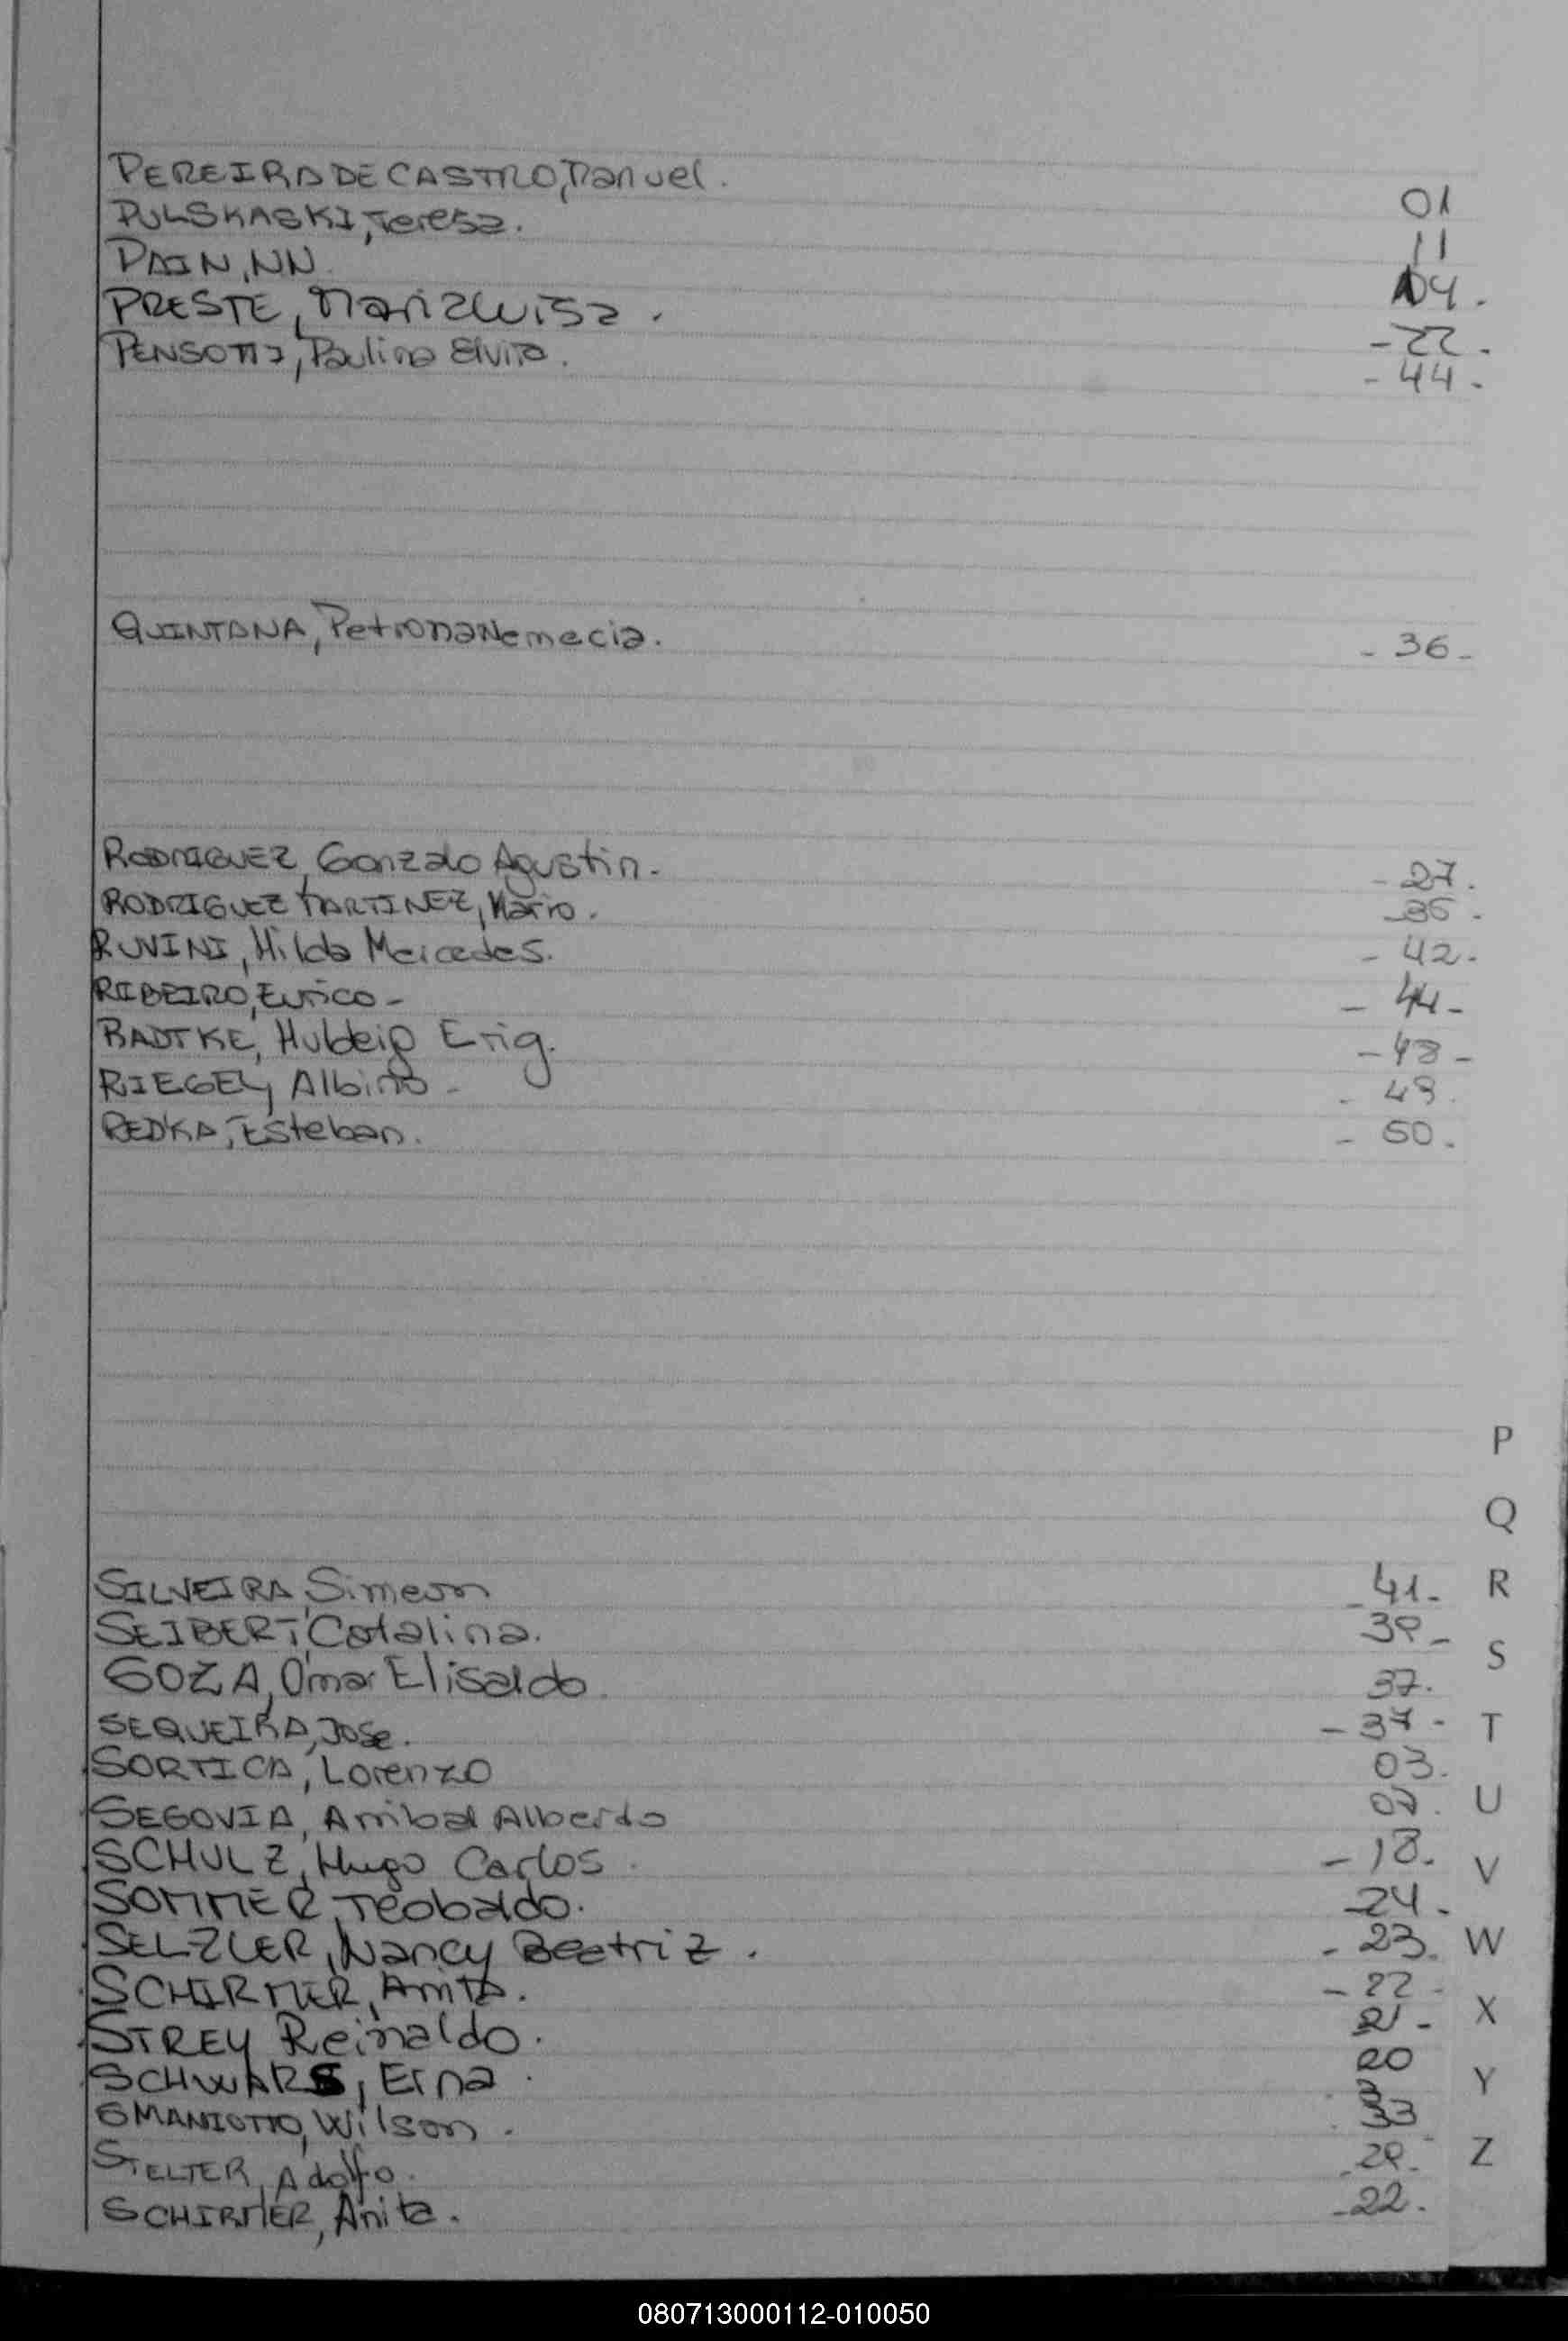 PEREIRA DE CASTRO, Manuel. 01
PULSKASKI, Teresa. 11
PAIN, NN. 04.
PRESTE, Maria Luisa. - 22.
PENSOTTI, Paulina Elvira. - 44.
QUINTANA, Petrona Nemecia. - 36 -
RODRIGUEZ, Gonzalo Agustin. - 27.
RODRIGUEZ MARTINEZ, Mario. - 36.
RUVINI, Hilda Mercedes. - 42.
RIBEIRO, Eurico - - 44 -
RADTKE, Erig. - 48 -
RIEGEL, Albino - - 49.
REDKA, Esteban. - 50.
SILVEIRA, Simeon - 41 -
SEIBERT, Catalina. 39 -
SOZA, Omar Elisaldo. 37.
SEQUEIRA, Jose. - 37 -
SORTICA, Lorenzo 03.
SEGOVIA, Anibal Alberto 07.
SCHULZ, Hugo Carlos. - 18.
SOMMER, Teobaldo. - 24.
SELZLER, Nancy Beatriz. - 23.
SCHIRMER, Anita. - 22 -
STREY, Reinaldo. 21 -
SCHWARS, Erna. 20
SMANIOTTO, Wilson. 33
STELTER, Adolfo. - 29.
SCHIRMER, Anita. - 22.
P
Q
R
S
T
U
V
W
X
Y
Z
080713000112-010050